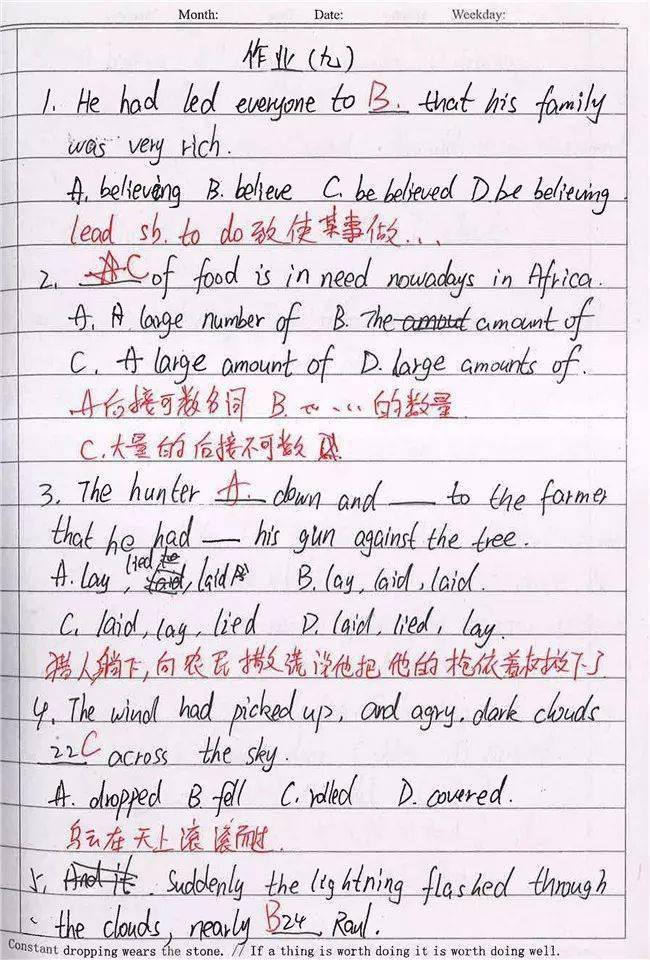 Month: Date: Weekday:
作业(九)
1. He had led everyone to B. that his family
was very rich.
A. believing B. believe C. be believed D. be believing.
lead sb. to do 致使某事做...
2. AC of food is in need nowadays in Africa.
A. A large number of B. The amout amount of
C. A large amount of D. large amounts of.
A后接可数名词 B. ~ ... 的数量
C.大量的后接不可数
3. The hunter A. down and __ to the farmer
that he had __ his gun against the tree.
A. lay, lied, laid B. lay, laid, laid.
C. laid, lay, lied D. laid, lied, lay.
猎人躺下,向农民撒谎说他把他的枪依着树放下了
4. The wind had picked up, and agry, dark clouds
22C across the sky.
A. dropped B. fell C. rolled D. covered.
乌云在天上滚滚而过.
5. And it. Suddenly the lightning flashed through
the clouds, nearly B24 Raul.
Constant dropping wears the stone. // If a thing is worth doing it is worth doing well.